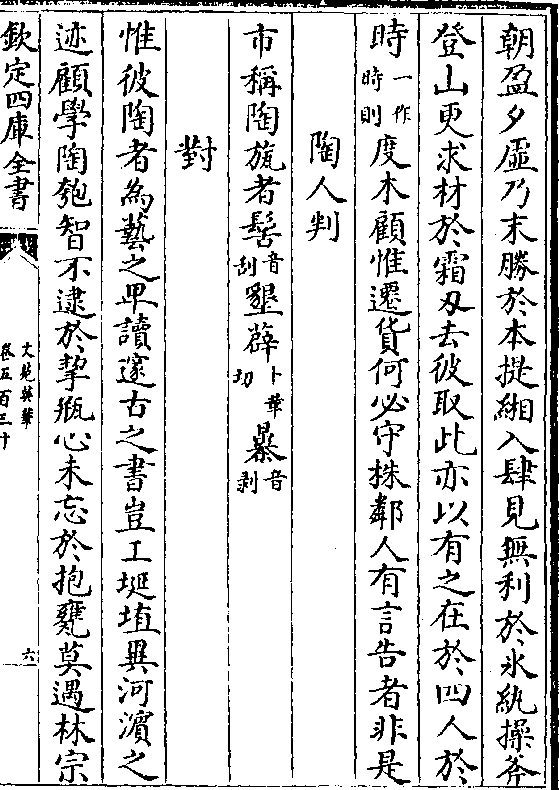 朝盈夕虛乃末勝於本提緗入肆見無利於氷紈操斧
登山更求材於霜刃去彼取此亦以有之在於四人於
時一作時則度木顧惟遷貨何必守株鄰人有言告者非是
陶人判
市稱陶旊者髺音刮墾薜卜革切暴音剥
對
惟彼陶者為藝之卑讀邃古之書豈工埏埴異河濵之
迹顧學陶匏智不逮於挈瓶心未忘於抱甕莫遇林宗
欽定四庫全書
文苑英華
卷五百三十
六